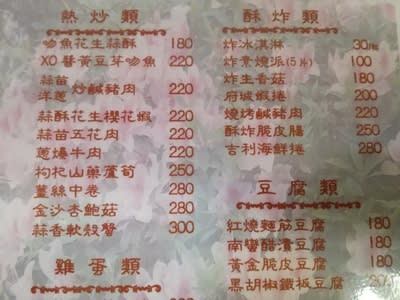 熱炒類
吻魚花生蒜酥 180
XO醬黃豆芽吻魚 220
蒜苗
洋蔥 炒鹹豬肉 220
蒜酥花生櫻花蝦 220
蒜苗五花肉 220
蔥爆牛肉 220
枸杞山藥蘆筍 250
薑絲中卷 280
金沙杏鮑菇 280
蒜香軟殼蟹 300
雞蛋類
酥炸類
炸冰淇淋 30/粒
炸素燒派(5片) 100
炸生香菇 180
府城蝦捲 200
燒烤鹹豬肉 220
酥炸脆皮腸 250
吉利海鮮捲 280
豆腐類
紅燒麵筋豆腐 180
南蠻醋漬豆腐 180
黃金脆皮豆腐 180
黑胡椒鐵板豆腐